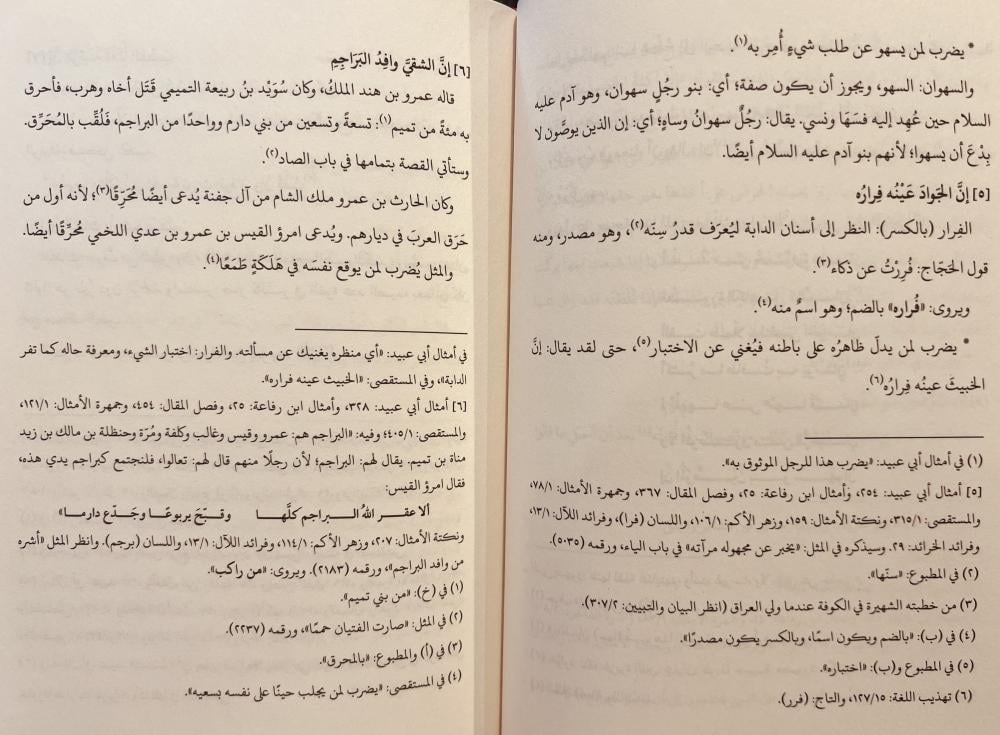 * يضرب لمن يسهو عن طلب شيءٍ أُمِر به(١).
والسهوان: السهو، ويجوز أن يكون صفة؛ أي: بنو رجُلٍ سهوان، وهو آدم عليه
السلام حين عُهِد إليه فسَهَا ونسي. يقال: رجُلٌ سهوانُ وساهٍ؛ أي: إن الذين يوصَّون لا
بِدْعَ أن يسهوا؛ لأنهم بنو آدم عليه السلام أيضًا.
[٥] إنَّ الجَوادَ عَيْنُه فِرارُه
الفِرار (بالكسر): النظر إلى أسنان الدابة ليُعرَف قدرُ سِنّه(٢)، وهو مصدر، ومنه
قول الحجّاج: فُرِرْتُ عن ذكاء(٣).
ويروى: «فُراره» بالضم؛ وهو اسمٌ منه(٤).
* يضرب لمن يدلّ ظاهرُه على باطنه فيُغني عن الاختبار(٥)، حتى لقد يقال: إنَّ
الخبيثَ عينُه فِرارُه(٦).
(١) في أمثال أبي عبيد: «يضرب هذا للرجل الموثوق به».
[٥] أمثال أبي عبيد: ٢٥٤، وأمثال ابن رفاعة: ٢٥، وفصل المقال: ٣٦٧، وجمهرة الأمثال: ٧٨/١،
والمستقصى: ٣١٥/١، ونكتة الأمثال: ١٥٩، وزهر الأكم: ١٠٦/١، واللسان (فرا)، وفرائد اللآل: ١٣/١،
وفرائد الخرائد: ٢٩. وسيذكره في المثل: «يخبر عن مجهوله مرآته» في باب الياء، ورقمه (٥٠٣٥).
(٢) في المطبوع: «سنّها».
(٣) من خطبته الشهيرة في الكوفة عندما ولي العراق (انظر البيان والتبيين: ٣٠٧/٢).
(٤) في (ب): «بالضم ويكون اسمًا، وبالكسر يكون مصدرًا».
(٥) في المطبوع و(ب): «اختباره».
(٦) تهذيب اللغة: ١٢٧/١٥، والتاج: (فرر).
[٦] إنَّ الشقيَّ وافِدُ البَرَاجِمِ
قاله عمرو بن هند الملكُ، وكان سُوَيْد بنُ ربيعة التميمي قَتَل أخاه وهرب، فأحرق
به مئةً من تميم(١): تسعةً وتسعين من بني دارم وواحدًا من البراجم، فَلُقِّب بالمُحَرِّق.
وستأتي القصة بتمامها في باب الصاد(٢).
وكان الحارث بن عمرو ملك الشام من آل جفنة يُدعى أيضًا مُحَرِّقًا(٣)؛ لأنه أول من
حَرَق العربَ في ديارهم. ويُدعى امرؤ القيس بن عمرو بن عدي اللخمي مُحرِّقًا أيضًا.
والمثل يُضرب لمن يوقع نفسَه في هَلَكَةٍ طَمَعًا(٤).
في أمثال أبي عبيد: «أي منظره يغنيك عن مسألته. والفرار: اختبار الشيء، ومعرفة حاله كما تفر
الدابة»، وفي المستقصى: «الخبيث عينه فراره».
[٦] أمثال أبي عبيد: ٣٢٨، وأمثال ابن رفاعة: ٢٥، وفصل المقال: ٤٥٤، وجمهرة الأمثال: ١٢١/١،
والمستقصى: ٤٠٥/١؛ وفيه: «البراجم هم: عمرو وقيس وغالب وكلفة ومُرّة وحنظلة بن مالك بن زيد
مناة بن تميم. يقال لهم: البراجم؛ لأن رجلًا منهم قال لهم: تعالوا، فلنجتمع كبراجم يدي هذه،
فقال امرؤ القيس:
ألا عقـر اللهُ البـراجم كلَّها وقبّحَ يربوعًا وجدّع دارما»
ونكتة الأمثال: ٢٠٧، وزهر الأكم: ١١٤/١، وفرائد اللآل: ١٣/١، واللسان (برجم). وانظر المثل «أشره
من وافد البراجم»، ورقمه (٢١٨٣). ويروى: «من راكب».
(١) في (خ): «من بني تميم».
(٢) في المثل: «صارت الفتيان حممًا»، ورقمه (٢٢٣٧).
(٣) في (أ) والمطبوع: «بالمحرق».
(٤) في المستقصى: «يضرب لمن يجلب حينًا على نفسه بسعيه».